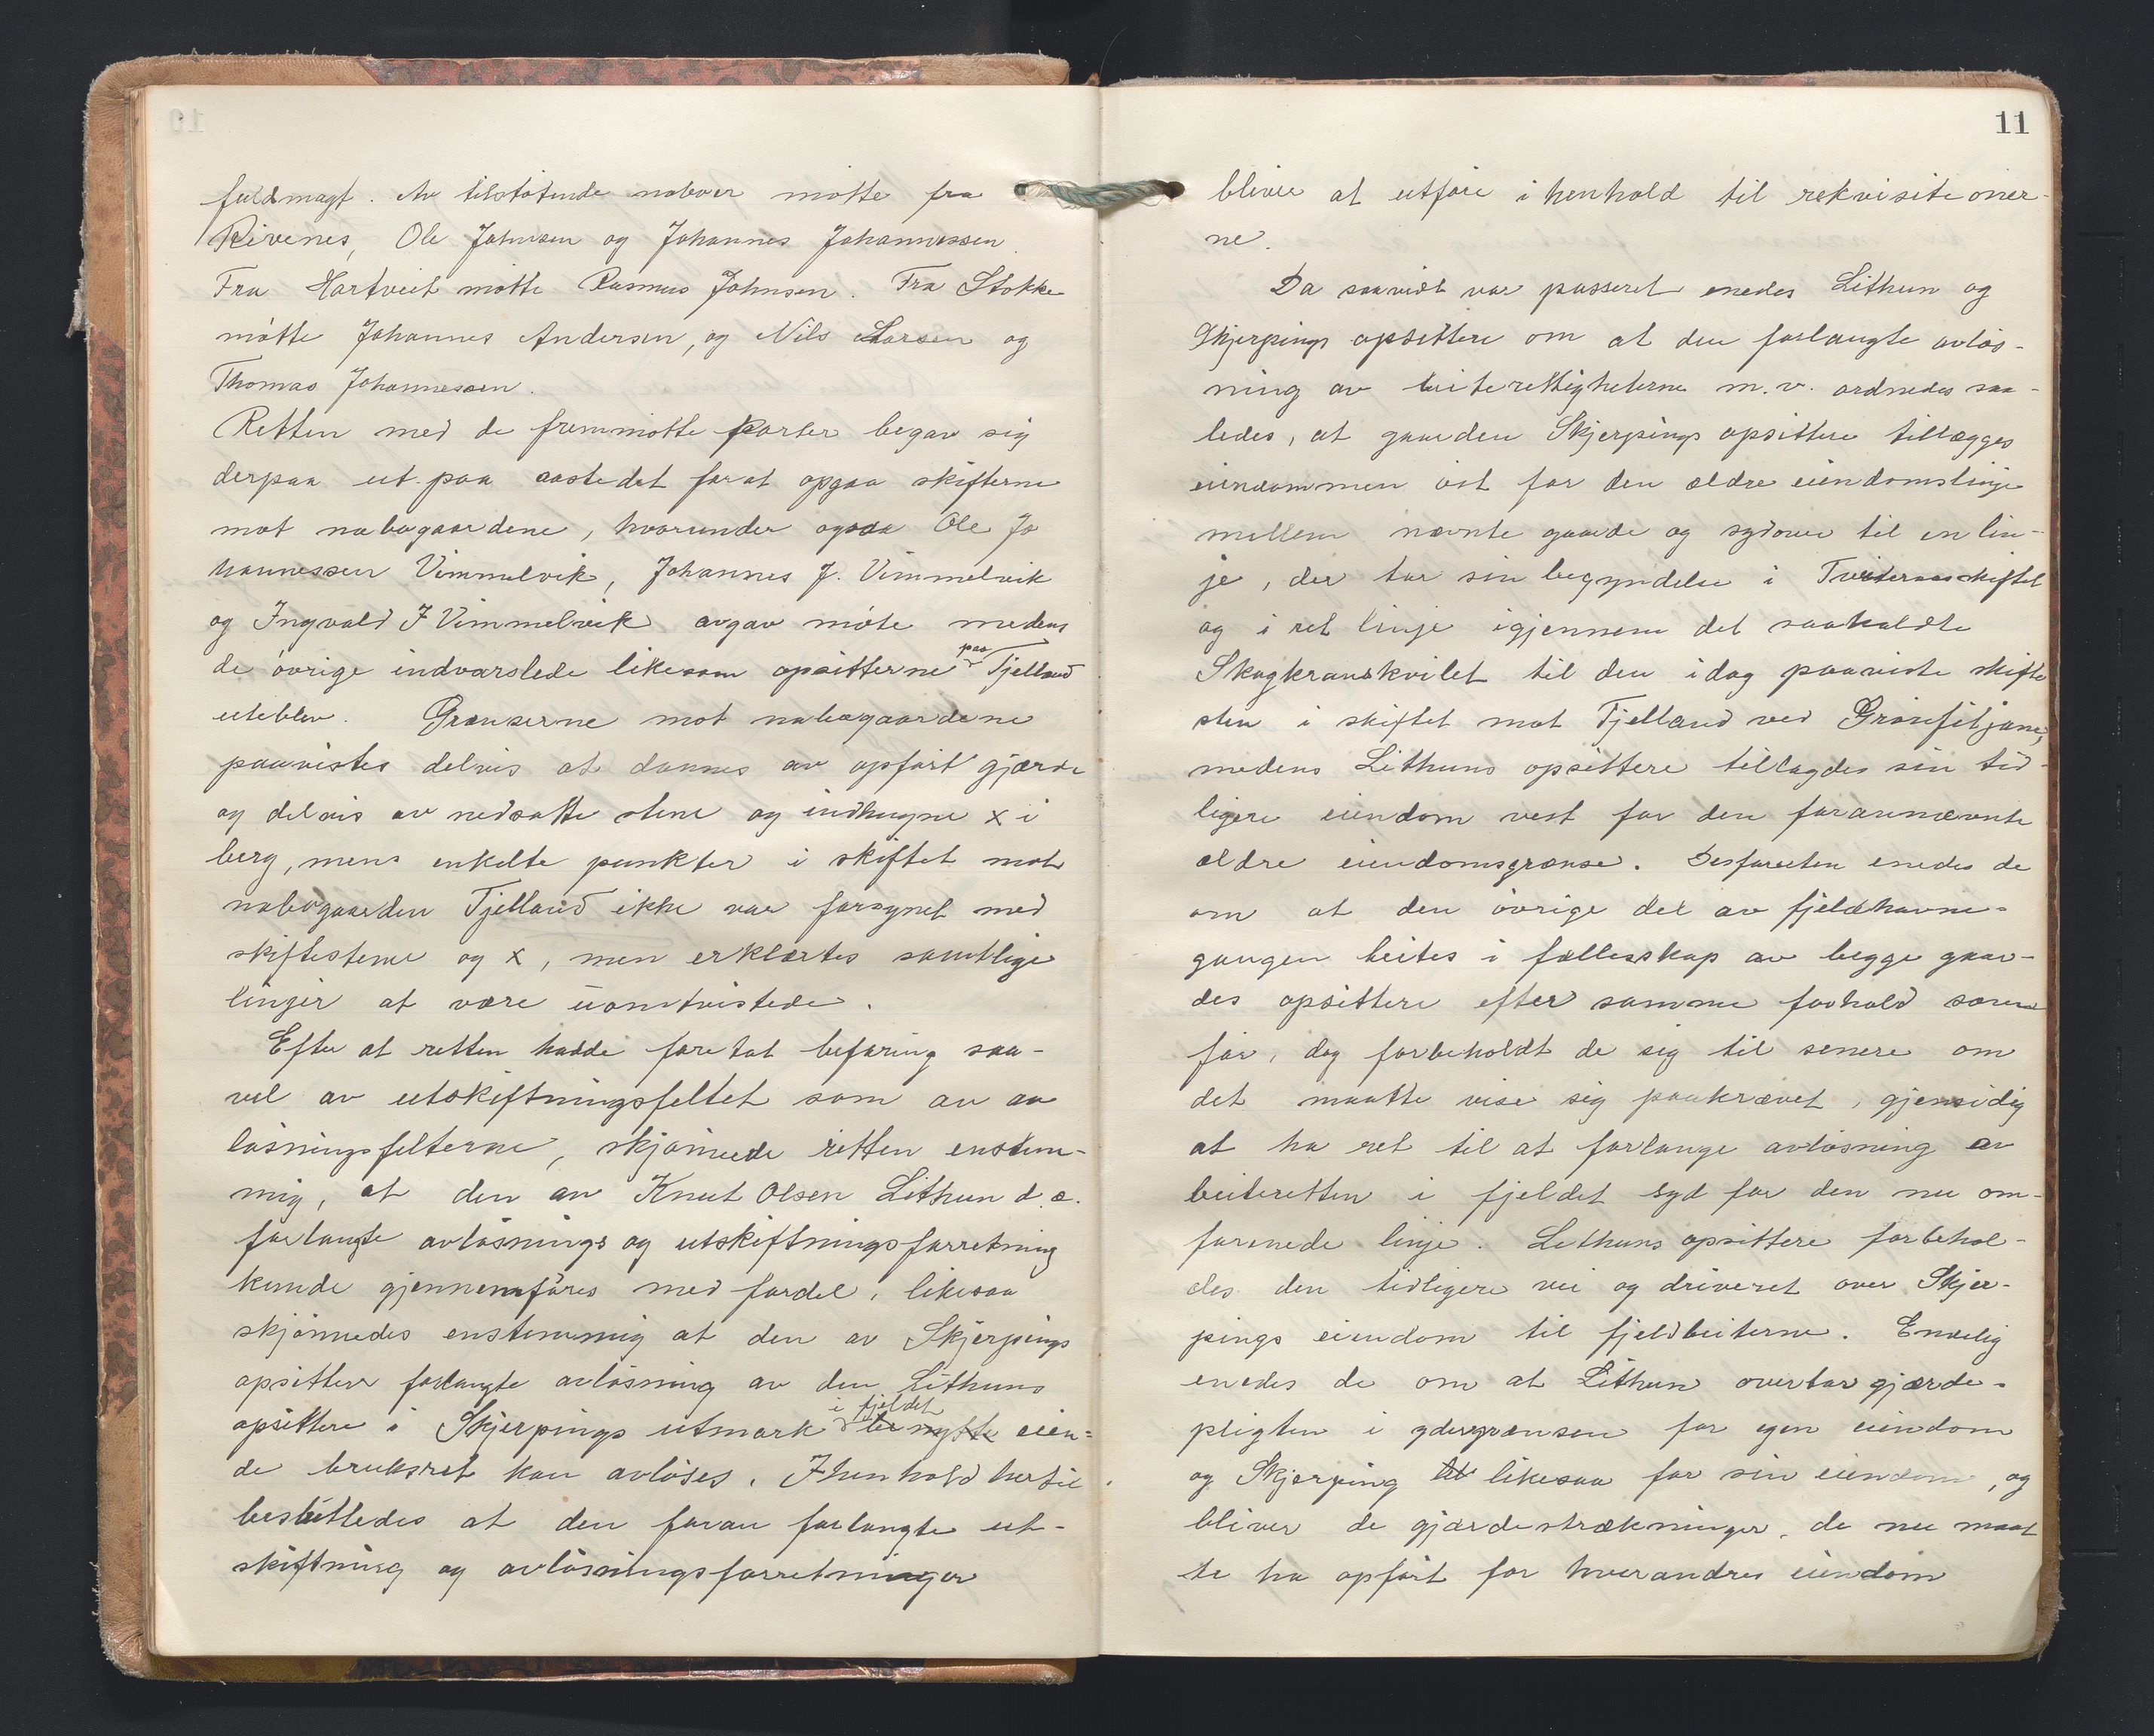 fuldmagt. Av tilstøtende naboer møtte fra
Rivenes, Ole Johnsen og Johannes Johannessen.
Fra Hartveit møtte Rasmus Johnsen. Fra Stokke
møtte Johannes Andersen, og Nils Larsen og
Thomas Johannessen.
Retten med de fremmøtte parter begav sig
derpaa ut paa aastedet forat opgaa skifterne
mot nabogaardene, hvorunder ogsaa Ole Jo
hannessen Vimmelvik, Johannes J. Vimmelvik
og Ingvald J Vimmelvik avgav møte medens
de øvrige indvarslede likesom opsitterne paa Tjelland
uteblev. Grænserne mot nabogaardene
paavistes delvis at dannes av opført gjærde
og delvis av nedsatte stene og indhugne x i
berg, mens enkelte punkter i skiftet mot
nabogaarden Tjelland ikke var forsynet med
skiftestene og x, men erklærtes samtlige
linjer at være uomtvistede.
Efter at retten hadde foretat befaring saa-
vel av utskiftningsfeltet som av av
løsningsfelterne, skjønnede retten enstem-
mig, at den av Knut Olsen Lithun d.æ.
forlangte avløsnings og utskiftningsforretning
kunde gjennemføres med fordel, likesaa
skjønnedes enstemmig at den av Skjerpings
opsittere forlangte avløsning av den Lithuns
opsittere i Skjerpings utmark i fjeldet benyttde eien-
de bruksret kan avløses. I henhold hertil
besluttedes at den foran forlangte ut-
skiftning og avløsningsforretninger
11
bliver at utføre i henhold til rekvisitioner-
ne.
Da saavidt var passeret enedes Lithun og
Skjerpings opsittere om at den forlangte avløs-
ning av beiterettigheterne m.v. ordnedes saa-
ledes, at gaarden Skjerpings opsittere tillægges
eiendommen øst for den ældre eiendomslinje
mellem nævnte gaarde og sydover til en lin-
je, der tar sin begyndelse i Tveiteraasskiftet
og i ret linje igjennem det saakaldte
Skogkranskvilet til den idag paaviste skifte
sten i skiftet mot Tjelland ved Grønefitjane,
medens Lithuns opsittere tillagdes sin tid-
ligere eiendom vest for den forannævnte
ældre eiendomsgrænse. Desforuten enedes de
om at den øvrige del av fjeldhavne-
gangen beites i fællesskap av begge gaar-
des opsittere efter samme forhold som
før, dog forbeholdt de sig til senere om
det maatte vise sig paakrævet, gjensidig
at ha ret til at forlange avløsning av
beiteretten i fjeldet syd for den nu om-
forenede linje. Lithuns opsittere forbehol-
des den tidligere vei og driveret over Skjer-
pings eiendom til fjeldbeiterne. Endelig
enedes de om at Lithun overtar gjærde-
pligten i ydergrænsen for egen eiendom
og Skjerping til likesaa for sin eiendom, og
bliver de gjærdestrækninger, de nu maat
te ha opført for hverandres eiendom